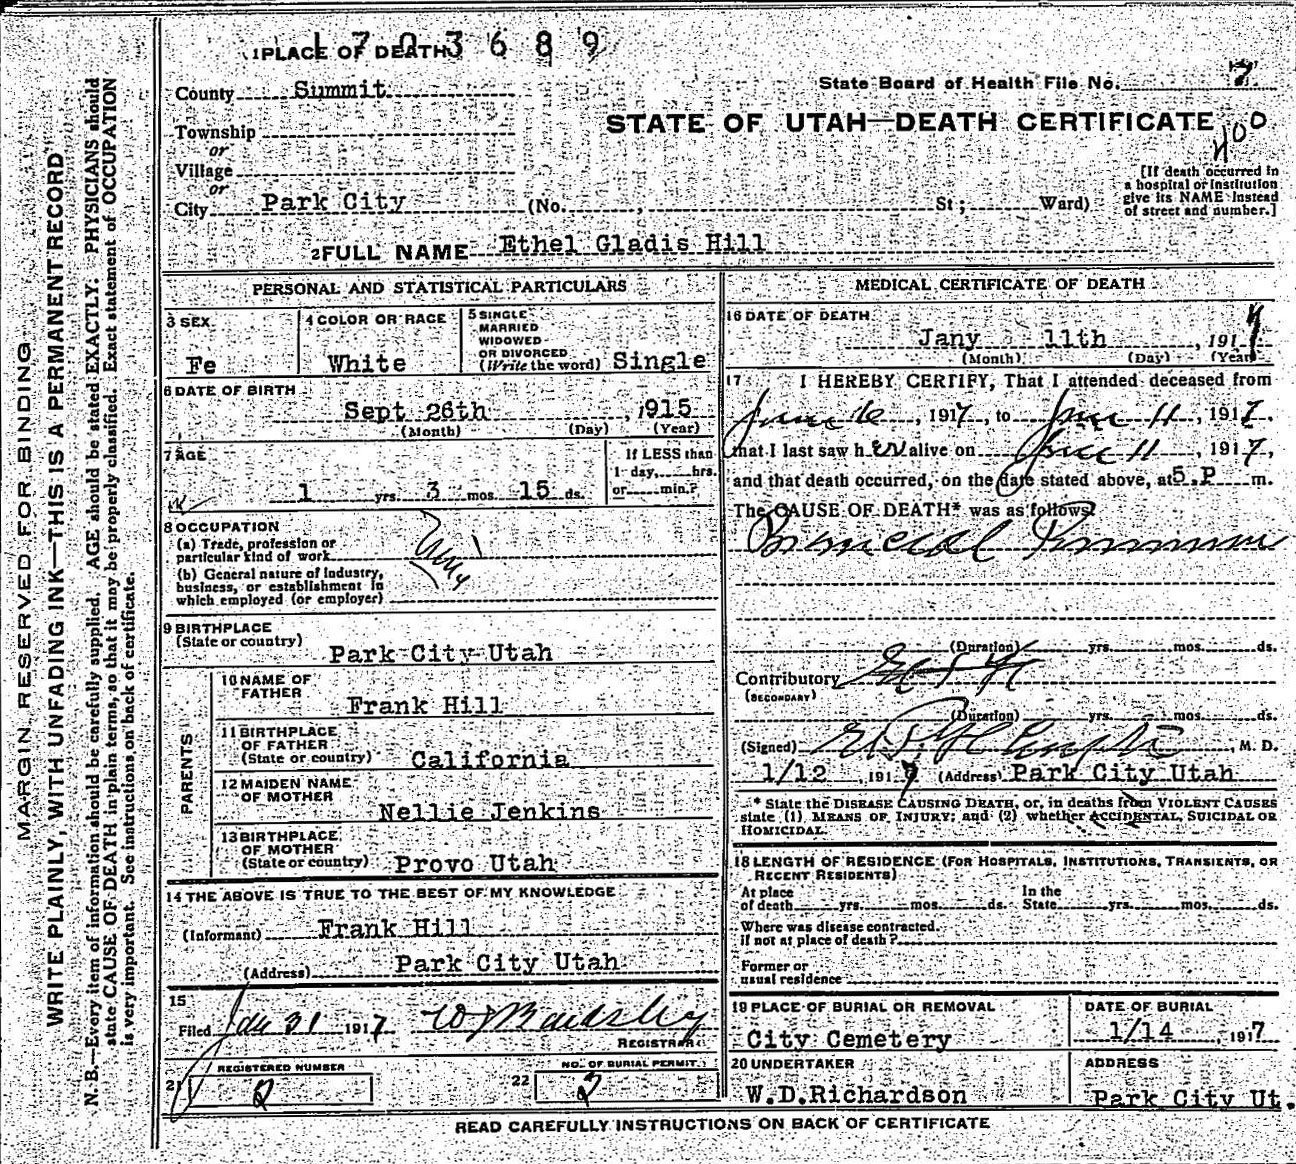 1 PLACE OF DEATH
1703689
County Summit
State Board of Health File No. 7
Township
STATE OF UTAH—DEATH CERTIFICATE
400
or
Village
or
City Park City (No. , St; Ward)
[If death occurred in
a hospital or institution
give its NAME instead
of street and number.]
2 FULL NAME Ethel Gladis Hill
MARGIN RESERVED FOR BINDING
WRITE PLAINLY, WITH UNFADING INK—THIS IS A PERMANENT RECORD
N. B.—Every item of information should be carefully supplied. AGE should be stated EXACTLY. PHYSICIANS should
state CAUSE OF DEATH in plain terms, so that it may be properly classified. Exact statement of OCCUPATION
is very important. See instructions on back of certificate.
PERSONAL AND STATISTICAL PARTICULARS
3 SEX
Fe
4 COLOR OR RACE
White
5 SINGLE
MARRIED
WIDOWED
OR DIVORCED
(Write the word) Single
6 DATE OF BIRTH
Sept 26th , 1915
(Month) (Day) (Year)
7 AGE
1 yrs. 3 mos. 15 ds.
If LESS than
1 day, hrs.
or min.?
8 OCCUPATION
(a) Trade, profession or
particular kind of work
(b) General nature of industry,
business, or establishment in
which employed (or employer)
9 BIRTHPLACE
(State or country)
Park City Utah
PARENTS
10 NAME OF
FATHER
Frank Hill
11 BIRTHPLACE
OF FATHER
(State or country) California
12 MAIDEN NAME
OF MOTHER
Nellie Jenkins
13 BIRTHPLACE
OF MOTHER
(State or country) Provo Utah
14 THE ABOVE IS TRUE TO THE BEST OF MY KNOWLEDGE
(Informant) Frank Hill
(Address) Park City Utah
15
Filed Jan 31 1917
REGISTRAR
21 REGISTERED NUMBER
2
22 NO. OF BURIAL PERMIT
2
MEDICAL CERTIFICATE OF DEATH
16 DATE OF DEATH
Jany 11th , 1917
(Month) (Day) (Year)
17 I HEREBY CERTIFY, That I attended deceased from
Jan 6 , 1917, to Jan 11 , 1917,
that I last saw her alive on Jan 11 , 1917,
and that death occurred, on the date stated above, at 5.P m.
The CAUSE OF DEATH* was as follows:
Bronchial Pneumonia
(Duration) yrs. mos. ds.
Contributory
(SECONDARY)
(Duration) yrs. mos. ds.
(Signed) , M. D.
1/12 , 1917 (Address) Park City Utah
* State the DISEASE CAUSING DEATH, or, in deaths from VIOLENT CAUSES
state (1) MEANS OF INJURY; and (2) whether ACCIDENTAL, SUICIDAL OR
HOMICIDAL.
18 LENGTH OF RESIDENCE (FOR HOSPITALS, INSTITUTIONS, TRANSIENTS, OR
RECENT RESIDENTS)
At place
of death yrs. mos. ds.
In the
State yrs. mos. ds.
Where was disease contracted,
if not at place of death?
Former or
usual residence
19 PLACE OF BURIAL OR REMOVAL
City Cemetery
DATE OF BURIAL
1/14 , 1917
20 UNDERTAKER
W.D.Richardson
ADDRESS
Park City Ut.
READ CAREFULLY INSTRUCTIONS ON BACK OF CERTIFICATE